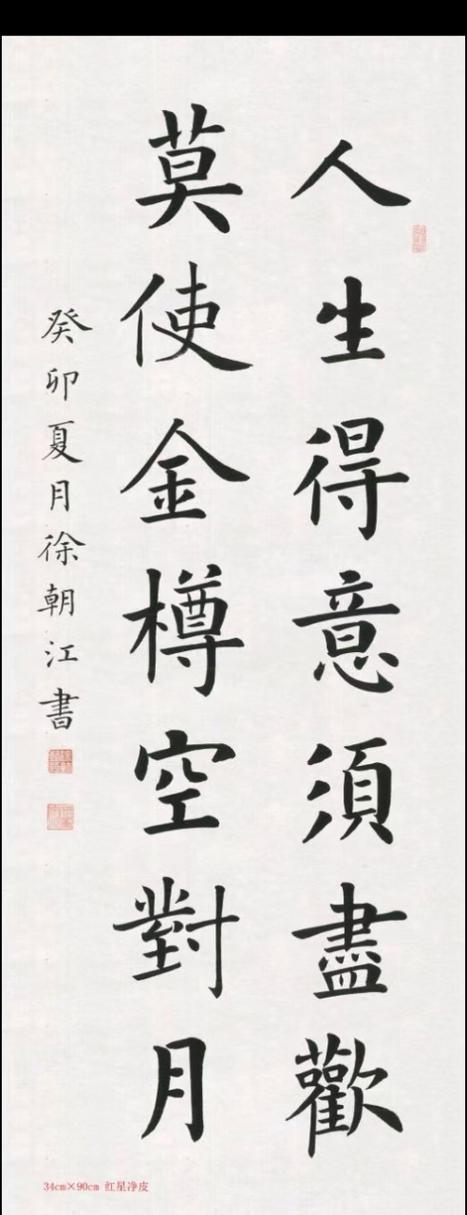 人生得意須盡歡
莫使金樽空對月
癸卯夏月徐朝江書
34cm×90cm 红星净皮